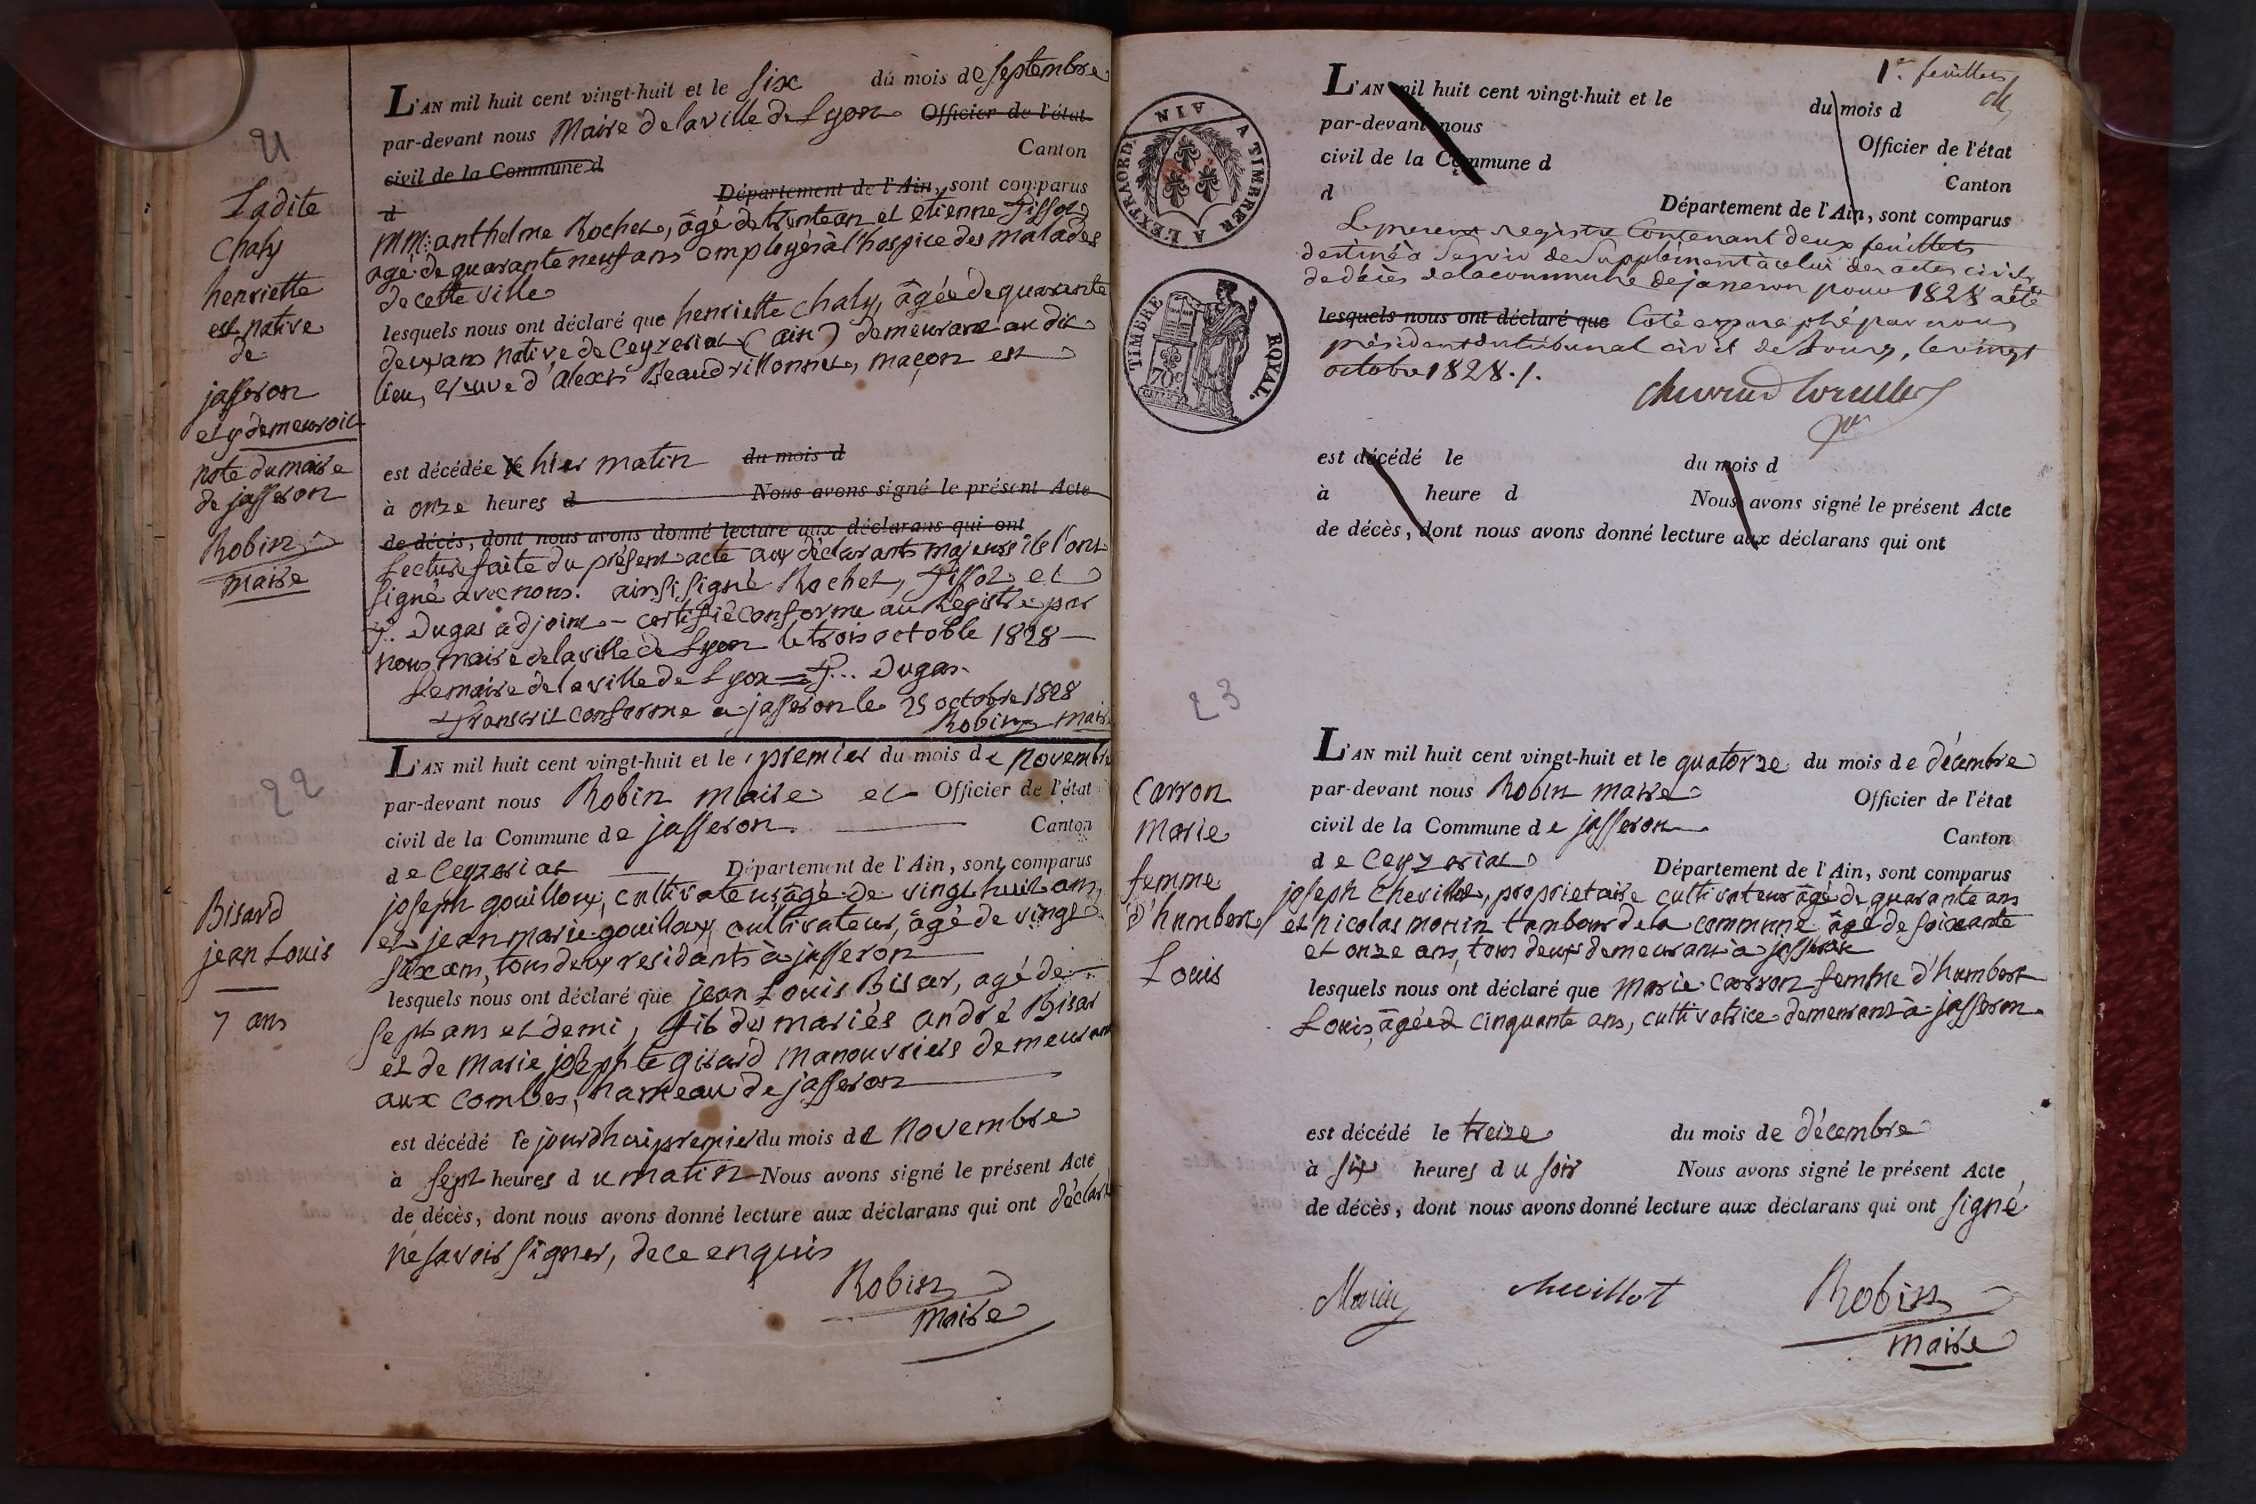 21
Ladite
Chaly
henriette
est native
de
jasseron
et y demeuroit
note du maire
de jasseron
Robin
maire
L'AN mil huit cent vingt-huit et le six du mois de septembre
par-devant nous Maire de la ville de Lyon Officier de l'état
civil de la Commune d Canton
d Département de l'Ain, sont comparus
MM: anthelme Rochet, âgé de trente an et etienne Tissot
agé de quarante neuf ans employés à l'hospice des malades
de cette ville
lesquels nous ont déclaré que henriette Chaly, âgée de quarante
deux ans native de Ceyzeriat (ain) demeurant au dit
lieu, veuve d'alexis Beaudrillonnet, maçon est
est décédée le hier matin du mois d
à onze heures d Nous avons signé le présent Acte
de décès, dont nous avons donné lecture aux déclarans qui ont
Lecture faite du présent acte aux déclarants majeurs ils l'ont
signé avec nous. ainsi signé Rochet, Tissot et
Dugas adjoint - certifié conforme au Registre par
nous maire de la ville de Lyon le trois octobre 1828
Le maire de la ville de Lyon = ... Dugas.
Transcrit conforme a jasseron le 25 octobre 1828
Robin maire
22
Bisard
jean Louis
7 ans
L'AN mil huit cent vingt-huit et le premier du mois de novembre
par-devant nous Robin maire et Officier de l'état
civil de la Commune de jasseron Canton
de Ceyzeriat Département de l'Ain, sont comparus
joseph gouilloux, cultivateur âgé de vingt huit ans,
et jean marie gouilloux cultivateur, âgé de vingt
six ans, tous deux residants à jasseron
lesquels nous ont déclaré que jean Louis Bisar, agé de
sept ans et demi, fils des mariés andré Bisar
et de Marie josephte girard manouvriers demeurant
aux combes, hameau de jasseron
est décédé le jourdhui premier du mois de novembre
à sept heures du matin Nous avons signé le présent Acte
de décès, dont nous avons donné lecture aux déclarans qui ont déclaré
ne savoir signer, de ce enquis
Robin
maire
1er. feuillet
A TIMBRER A L'EXTRAORD. AIN
TIMBRE ROYAL.
70c
L'AN mil huit cent vingt-huit et le du mois d
par-devant nous Officier de l'état
civil de la Commune d Canton
d Département de l'Ain, sont comparus
Le present registre contenant deux feuillets
destiné à servir de supplément à celui des actes civils
de décès de la commune de jasseron pour 1828 a été
lesquels nous ont déclaré que Coté et paraphé par nous
président du tribunal civil de Bourg, le vingt
octobre 1828./.
est décédé le du mois d
à heure d Nous avons signé le présent Acte
de décès, dont nous avons donné lecture aux déclarans qui ont
23
Carron
Marie
femme
d'humbert
Louis
L'AN mil huit cent vingt-huit et le quatorze du mois de décembre
par-devant nous Robin maire Officier de l'état
civil de la Commune de jasseron Canton
de Ceyzeriat Département de l'Ain, sont comparus
joseph Chevillot, proprietaire cultivateur âgé de quarante ans
et nicolas morin tambour de la commune âgé de soixante
et onze ans, tous deux demeurant à jasseron
lesquels nous ont déclaré que Marie Carron femme d'humbert
Louis, âgée de cinquante ans, cultivatrice demeurant à jasseron
est décédé le treize du mois de décembre
à six heures du soir Nous avons signé le présent Acte
de décès, dont nous avons donné lecture aux déclarans qui ont signé
Morin chevillot Robin
maire